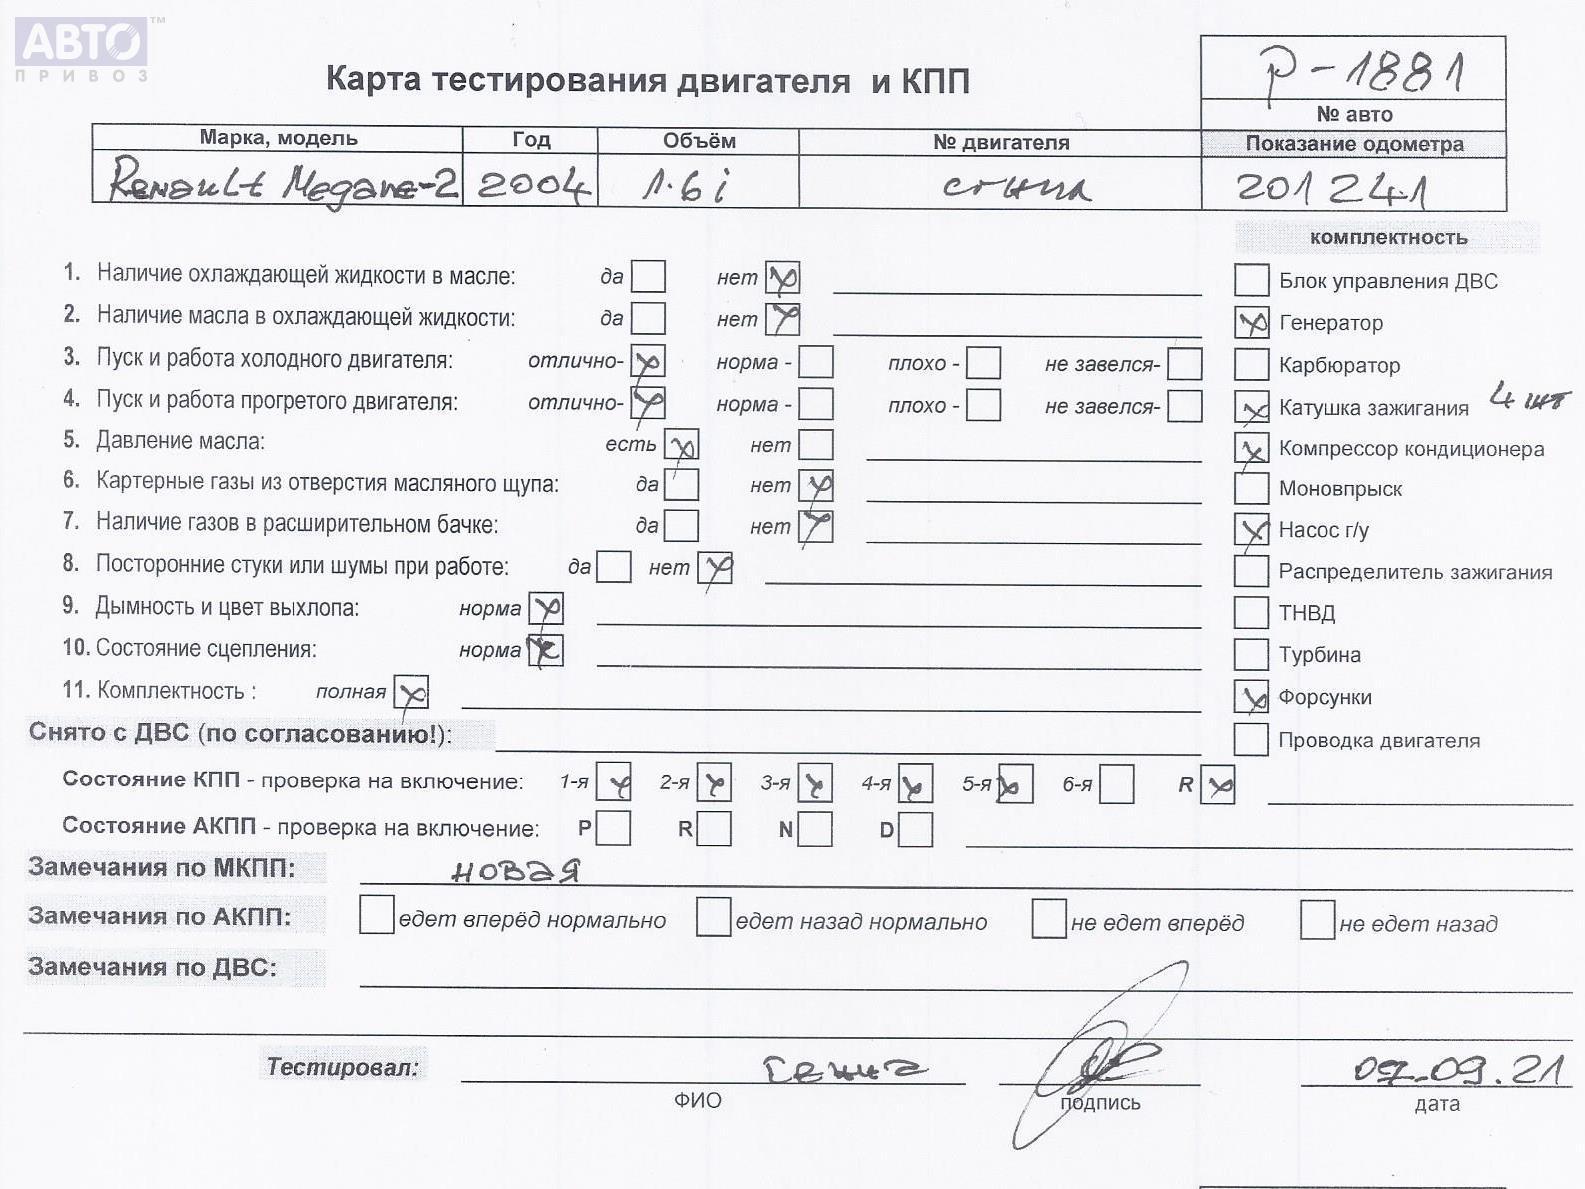 АВТО™
ПРИВОЗ
Р-1881
Карта тестирования двигателя и КПП
№ авто
Марка, модель Год Объём № двигателя Показание одометра
Renault Megane-2 2004 1.6i 201241
комплектность
1. Наличие охлаждающей жидкости в масле: да нет Блок управления ДВС
2. Наличие масла в охлаждающей жидкости: да нет Генератор
3. Пуск и работа холодного двигателя: отлично- норма - плохо - не завелся- Карбюратор
4. Пуск и работа прогретого двигателя: отлично- норма - плохо - не завелся- Катушка зажигания 4 шт
5. Давление масла: есть нет Компрессор кондиционера
6. Картерные газы из отверстия масляного щупа: да нет Моновпрыск
7. Наличие газов в расширительном бачке: да нет Насос г/у
8. Посторонние стуки или шумы при работе: да нет Распределитель зажигания
9. Дымность и цвет выхлопа: норма ТНВД
10. Состояние сцепления: норма Турбина
11. Комплектность : полная Форсунки
Снято с ДВС (по согласованию!): Проводка двигателя
Состояние КПП - проверка на включение: 1-я 2-я 3-я 4-я 5-я 6-я R
Состояние АКПП - проверка на включение: P R N D
Замечания по МКПП: новая
Замечания по АКПП: едет вперёд нормально едет назад нормально не едет вперёд не едет назад
Замечания по ДВС:
Тестировал: 07.09.21
ФИО подпись дата